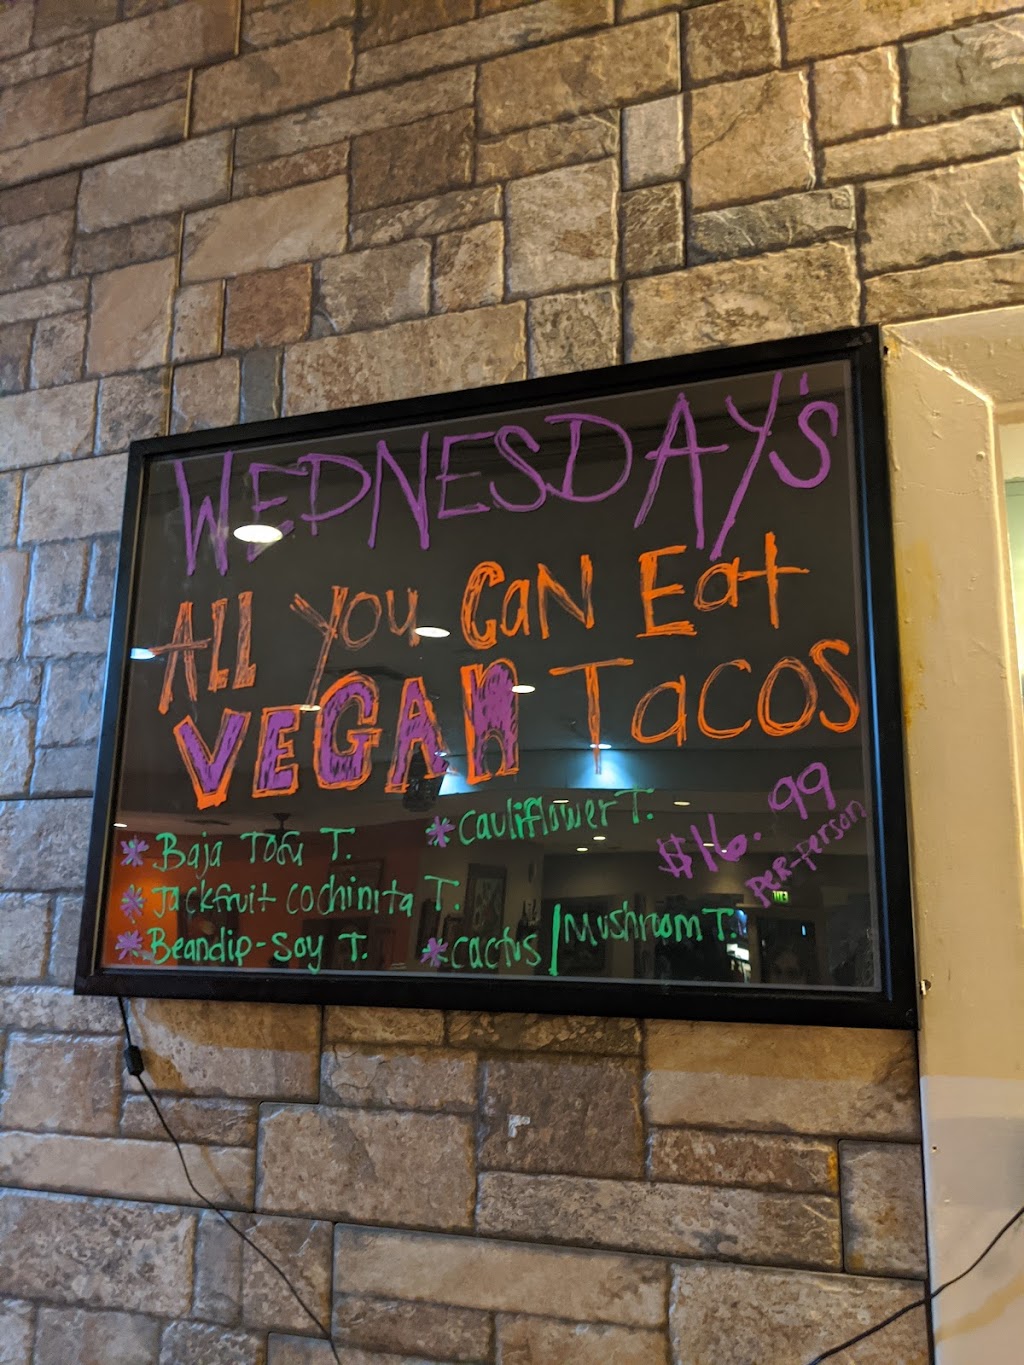 WEDNESDAY's
ALL YOU CaN Eat
VEGAN TacOS
* Baja Tofu T.
* Jackfruit cochinita T.
* Beandip-Soy T.
* cauliflower T.
* cactus/Mushroom T.
$16.99
per-person